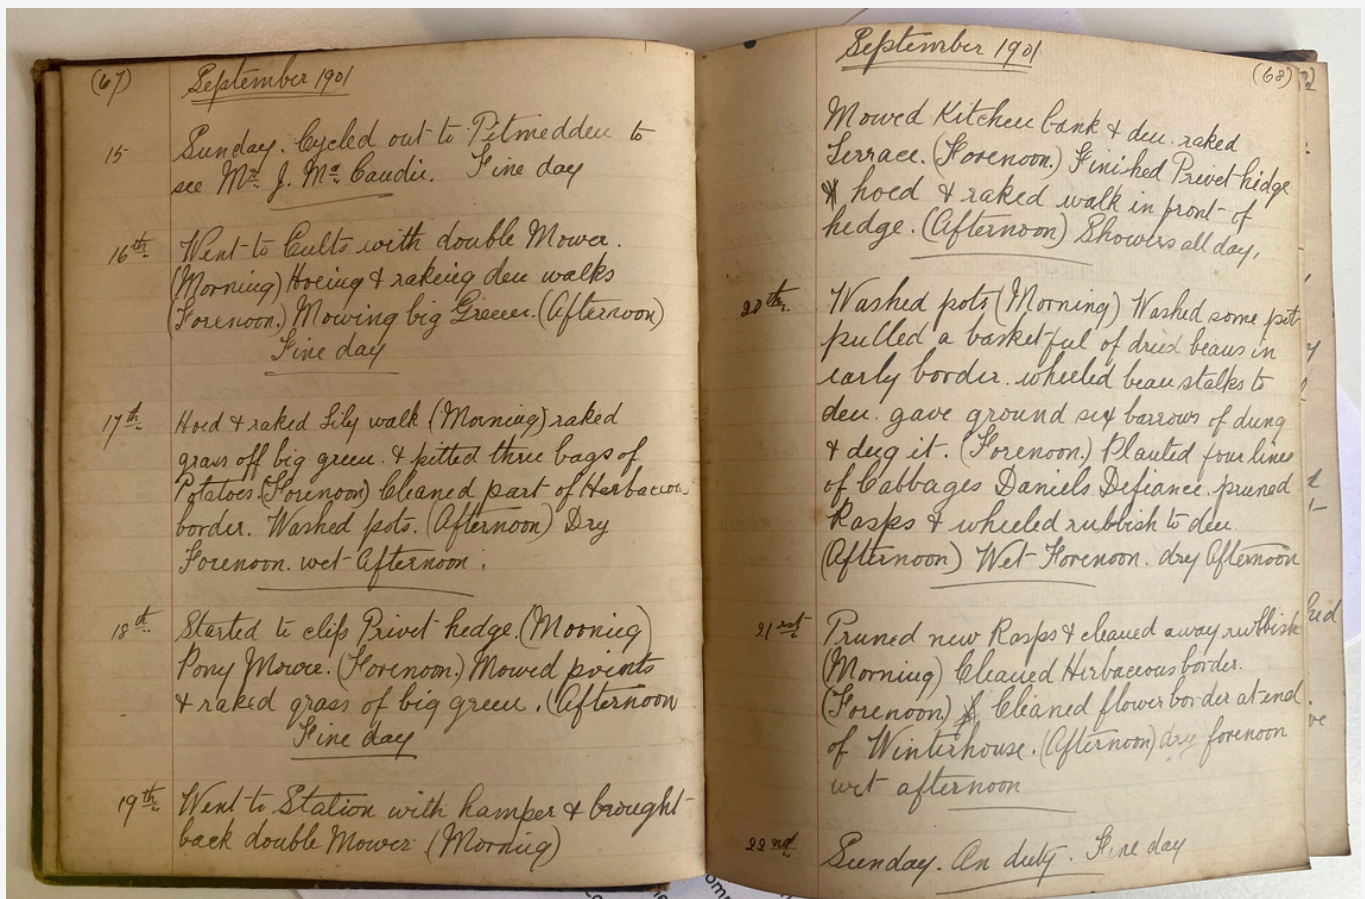 (67) September 1901
15 Sunday. Cycled out to Pitmedden to
see Mr. J. Mc. Caudie. Fine day
16th. Went to Cults with double Mower.
(Morning) Hoeing & rakeing den walks
(Forenoon.) Mowing big Green. (Afternoon)
Fine day
17th. Hoed & raked Lily walk (Morning) raked
grass off big green. & pitted three bags of
Potatoes. (Forenoon) Cleaned part of Herbaceou
border. Washed pots. (Afternoon) Dry
Forenoon. wet Afternoon.
18th. Started to clip Privet hedge. (Morning)
Pony Mower. (Forenoon.) Mowed points
& raked grass of big green. (Afternoon
Fine day
19th. Went to Station with hamper & brought
back double Mower (Morning)
September 1901 (68)
Mowed Kitchen bank & den. raked
Terrace. (Forenoon.) Finished Privet hedge
hoed & raked walk in front of
hedge. (Afternoon) Showers all day.
20th. Washed pots (Morning) Washed some pots
pulled a basketful of dried beans in
early border. wheeled bean stalks to
den. gave ground six barrows of dung
& dug it. (Forenoon.) Planted four lines
of Cabbages Daniels Defiance. pruned
Rasps & wheeled rubbish to den
(Afternoon) Wet Forenoon. dry Afternoon
21rst. Pruned new Rasps & cleaned away rubbish
(Morning) Cleaned Herbaceous border.
(Forenoon) Cleaned flower border at end
of Winterhouse. (Afternoon) dry forenoon
wet afternoon
22nd. Sunday. On duty. Fine day